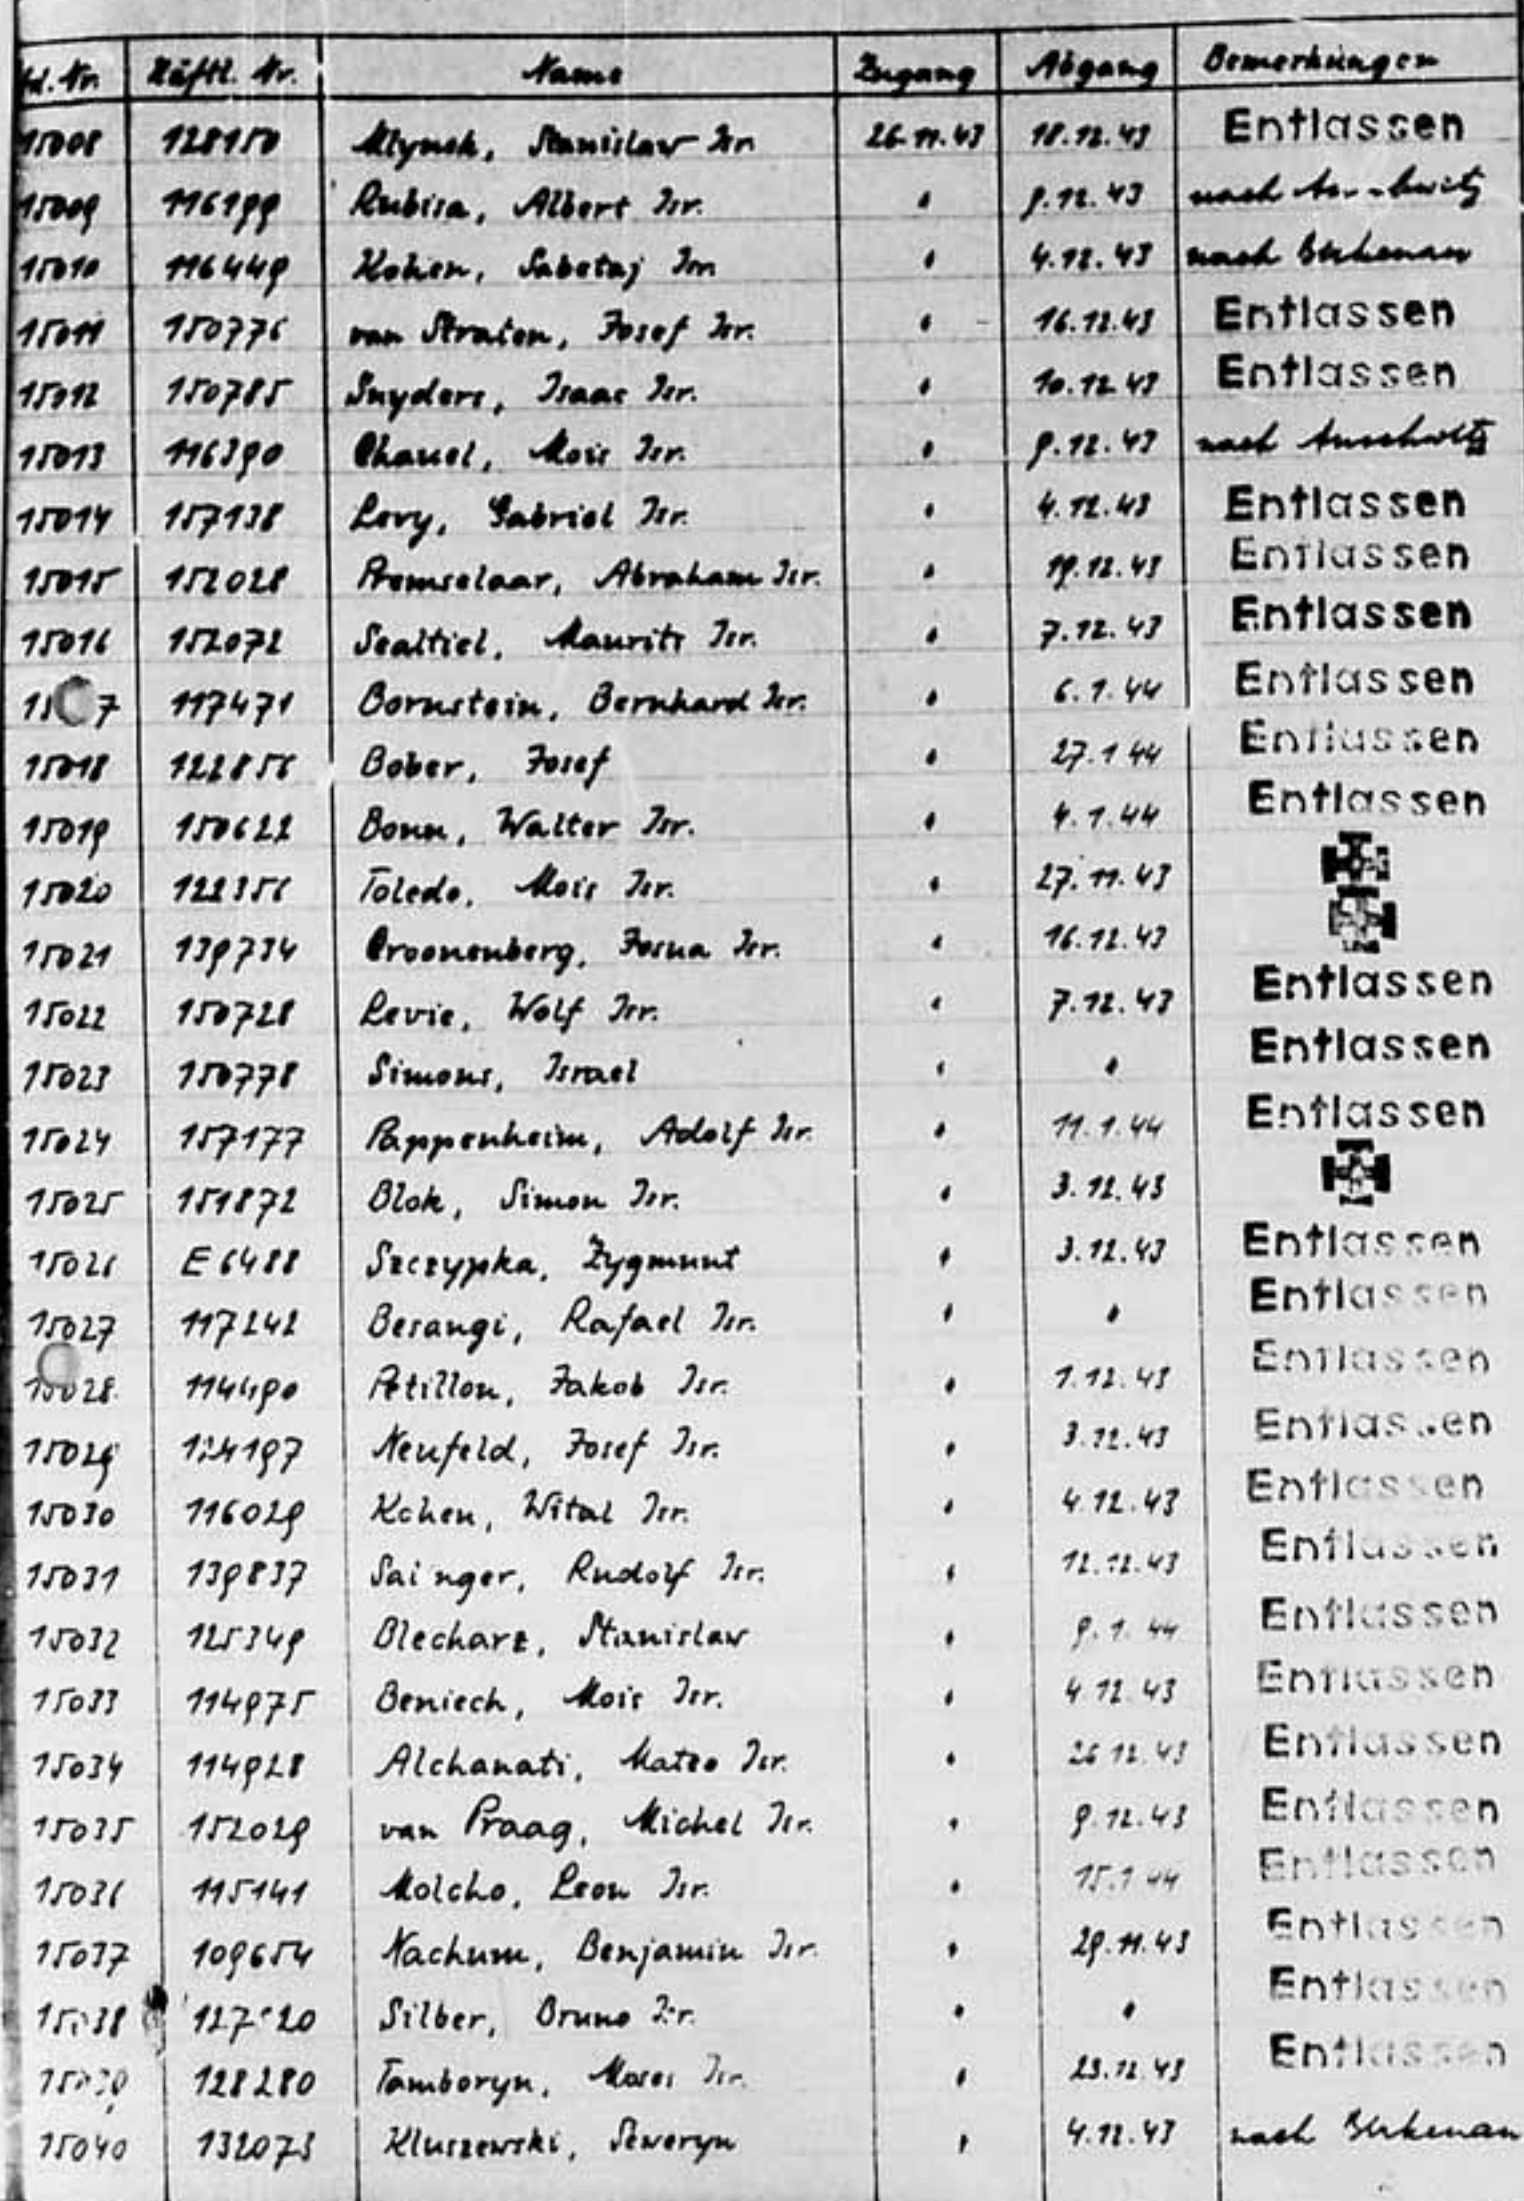 Lfd. Nr. Häftl. Nr. Name Zugang Abgang Bemerkungen
15008 128150 Mlynek, Stanislaw Isr. 26.11.43 18.12.43 Entlassen
15009 116199 Rubisa, Albert Isr. " 9.12.43 nach Auschwitz
15010 116449 Kohen, Sabetaj Isr. " 4.12.43 nach Birkenau
15011 150776 van Straten, Josef Isr. " 16.12.43 Entlassen
15012 150785 Snyders, Isaac Isr. " 10.12.43 Entlassen
15013 116390 Chauel, Mois Isr. " 9.12.43 nach Auschwitz
15014 157138 Levy, Gabriel Isr. " 4.12.43 Entlassen
15015 152028 Premselaar, Abraham Isr. " 19.12.43 Entlassen
15016 152072 Sealtiel, Maurits Isr. " 7.12.43 Entlassen
117471 Bornstein, Bernhard Isr. " 6.1.44 Entlassen
15018 122856 Bober, Josef " 27.1.44 Entlassen
15019 150622 Bonn, Walter Isr. " 4.1.44 Entlassen
15020 122356 Toledo, Mois Isr. " 27.11.43
15021 139734 Croonenberg, Josua Isr. " 16.12.43
15022 150728 Levie, Wolf Isr. " 7.12.43 Entlassen
15023 150778 Simons, Israel " " Entlassen
15024 157177 Pappenheim, Adolf Isr. " 11.1.44 Entlassen
15025 151872 Blok, Simon Isr. " 3.12.43
15026 E 6488 Szczypka, Zygmunt " 3.12.43 Entlassen
15027 117242 Besangi, Rafael Isr. " " Entlassen
15028 114490 Petillon, Jakob Isr. " 1.12.43 Entlassen
15029 124197 Neufeld, Josef Isr. " 3.12.43 Entlassen
15030 116029 Kohen, Wital Isr. " 4.12.43 Entlassen
15031 139837 Sainger, Rudolf Isr. " 12.12.43 Entlassen
15032 125349 Blecharz, Stanislaw " 9.1.44 Entlassen
15033 114975 Beniech, Mois Isr. " 4.12.43 Entlassen
15034 114928 Alchanati, Mateo Isr. " 26.12.43 Entlassen
15035 152029 van Praag, Michel Isr. " 9.12.43 Entlassen
15036 115141 Molcho, Leon Isr. " 15.1.44 Entlassen
15037 109654 Nachum, Benjamin Isr. " 29.11.43 Entlassen
15038 Silber, Bruno Isr. " " Entlassen
15039 128280 Tamboryn, Moses Isr. " 23.12.43 Entlassen
15040 132073 Kluszewski, Seweryn " 4.12.43 nach Birkenau